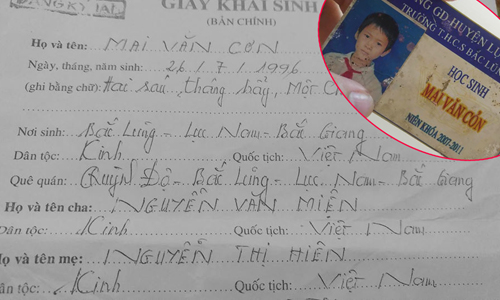 ĐĂNG KÝ LẠI
GIẤY KHAI SINH
(BẢN CHÍNH)
Họ và tên: MAI VĂN CƠN
Ngày, tháng, năm sinh: 26 / 7 / 1996
(ghi bằng chữ): Hai sáu, tháng bảy, Một
Nơi sinh: Bắc Lũng - Lục Nam - Bắc Giang
Dân tộc: Kinh Quốc tịch: Việt Nam
Quê quán: Quỳnh Độ - Bắc Lũng - Lục Nam - Bắc Giang
Họ và tên cha: NGUYỄN VĂN MIÊN
Dân tộc: Kinh Quốc tịch: Việt Nam
Họ và tên mẹ: NGUYỄN THỊ HIÊN
Dân tộc: Kinh Quốc tịch: Việt Nam
NG GD HUYỆN L
TRƯỜNG T.H.C.S BẮC LŨN
HỌC SINH
MAI VĂN CÓN
NIÊN KHÓA 2007-2011